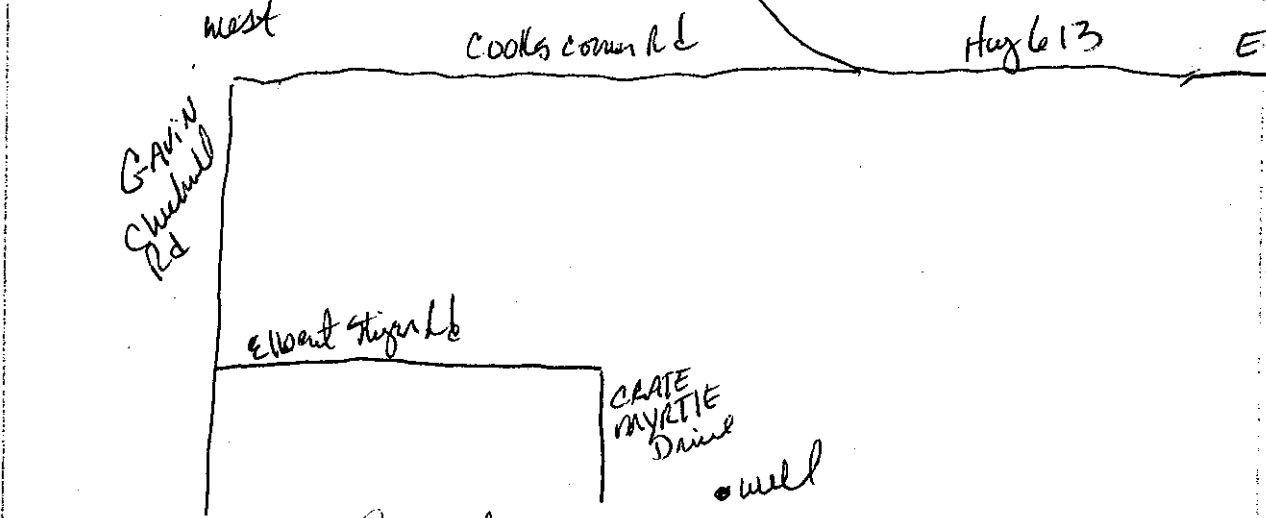 west
Cooks corner Rd
Hwy 613
E
GAVIN
Rd
Elbert
CRATE
MYRTLE
Drive
well